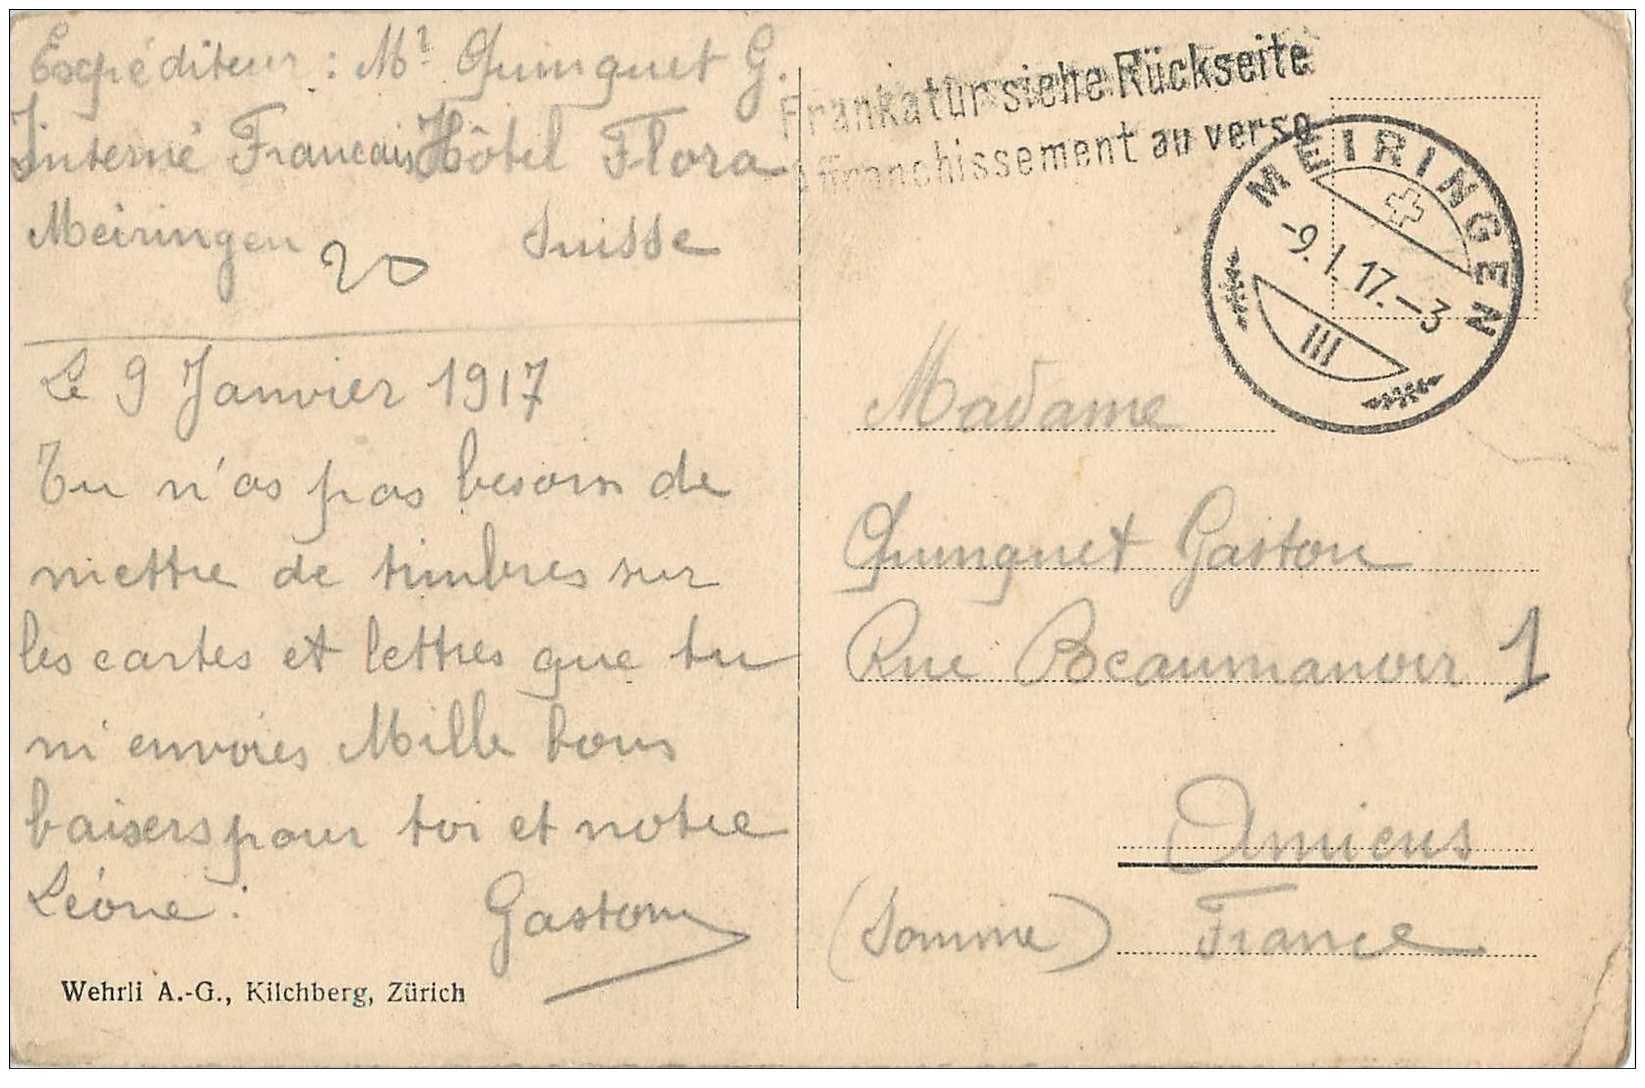 Expéditeur : Mr Quinquet G.
Interné Francais Hôtel Flora
Meiringen 20 Suisse
Le 9 Janvier 1917
Tu n'as pas besoin de
mettre de timbres sur
les cartes et lettres que tu
m'envoies Mille bons
baisers pour toi et notre
Léone.
Gaston
Wehrli A.-G., Kilchberg, Zürich
Frankatur siehe Rückseite
Affranchissement au verso
MEIRINGEN
-9.I.17.-3
III
Madame
Quinquet Gaston
Rue Beaumanoir 1
Amiens
(Somme) France